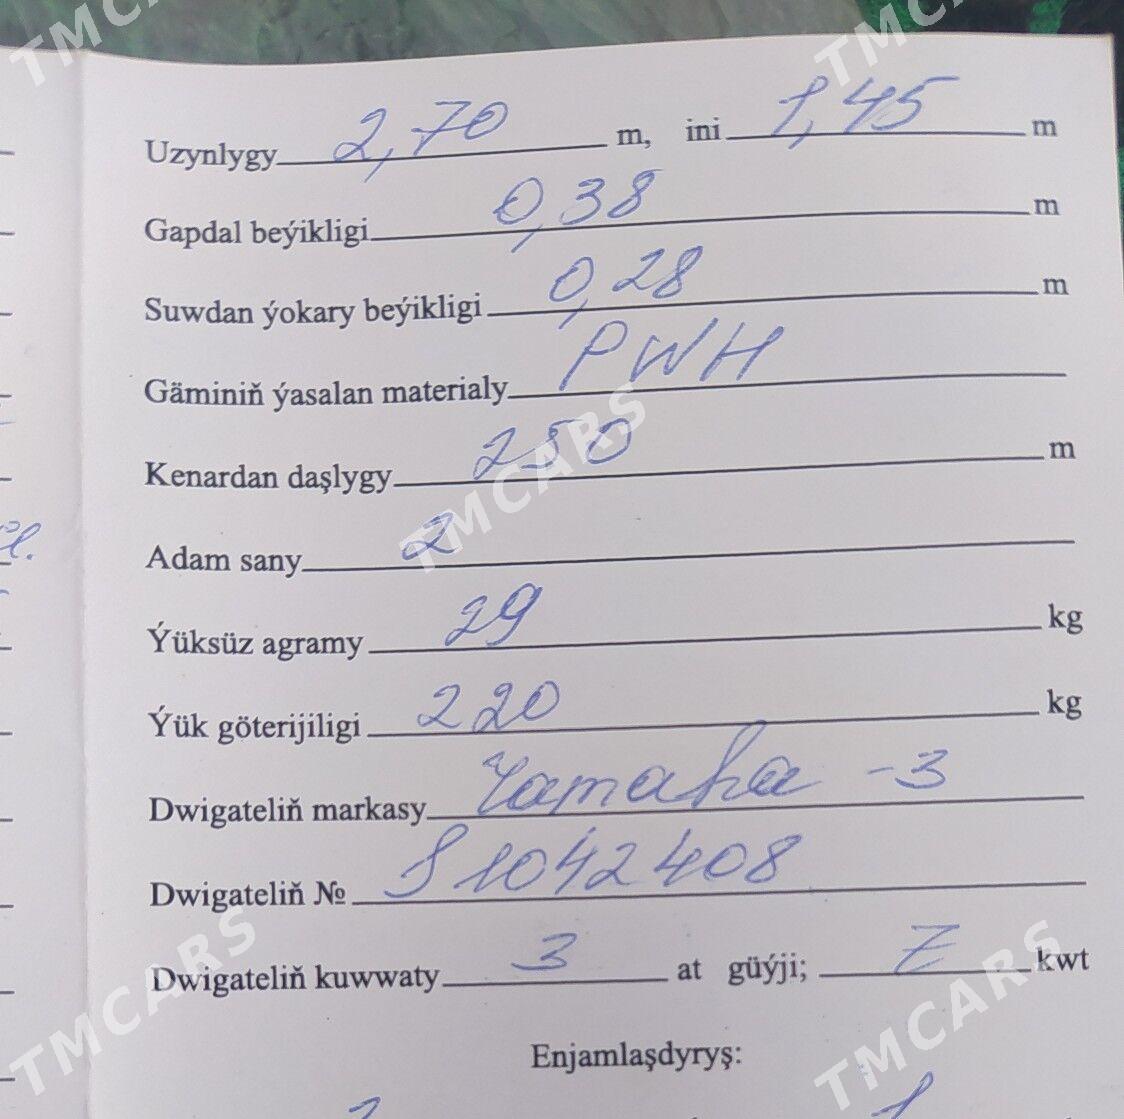 TMCARS TMCARS
Uzynlygy 2,70 m, ini 1,45 m
Gapdal beýikligi 0,38 m
Suwdan ýokary beýikligi 0,28 m
Gäminiň ýasalan materialy PWH
Kenardan daşlygy 250 m
TMCARS
Adam sany 2
Ýüksüz agramy 29 kg
Ýük göterijiligi 220 kg
Dwigateliň markasy Yamaha -3
Dwigateliň № S1042408
Dwigateliň kuwwaty 3 at güýji; Z kwt
TMCARS TMCARS
Enjamlaşdyryş: